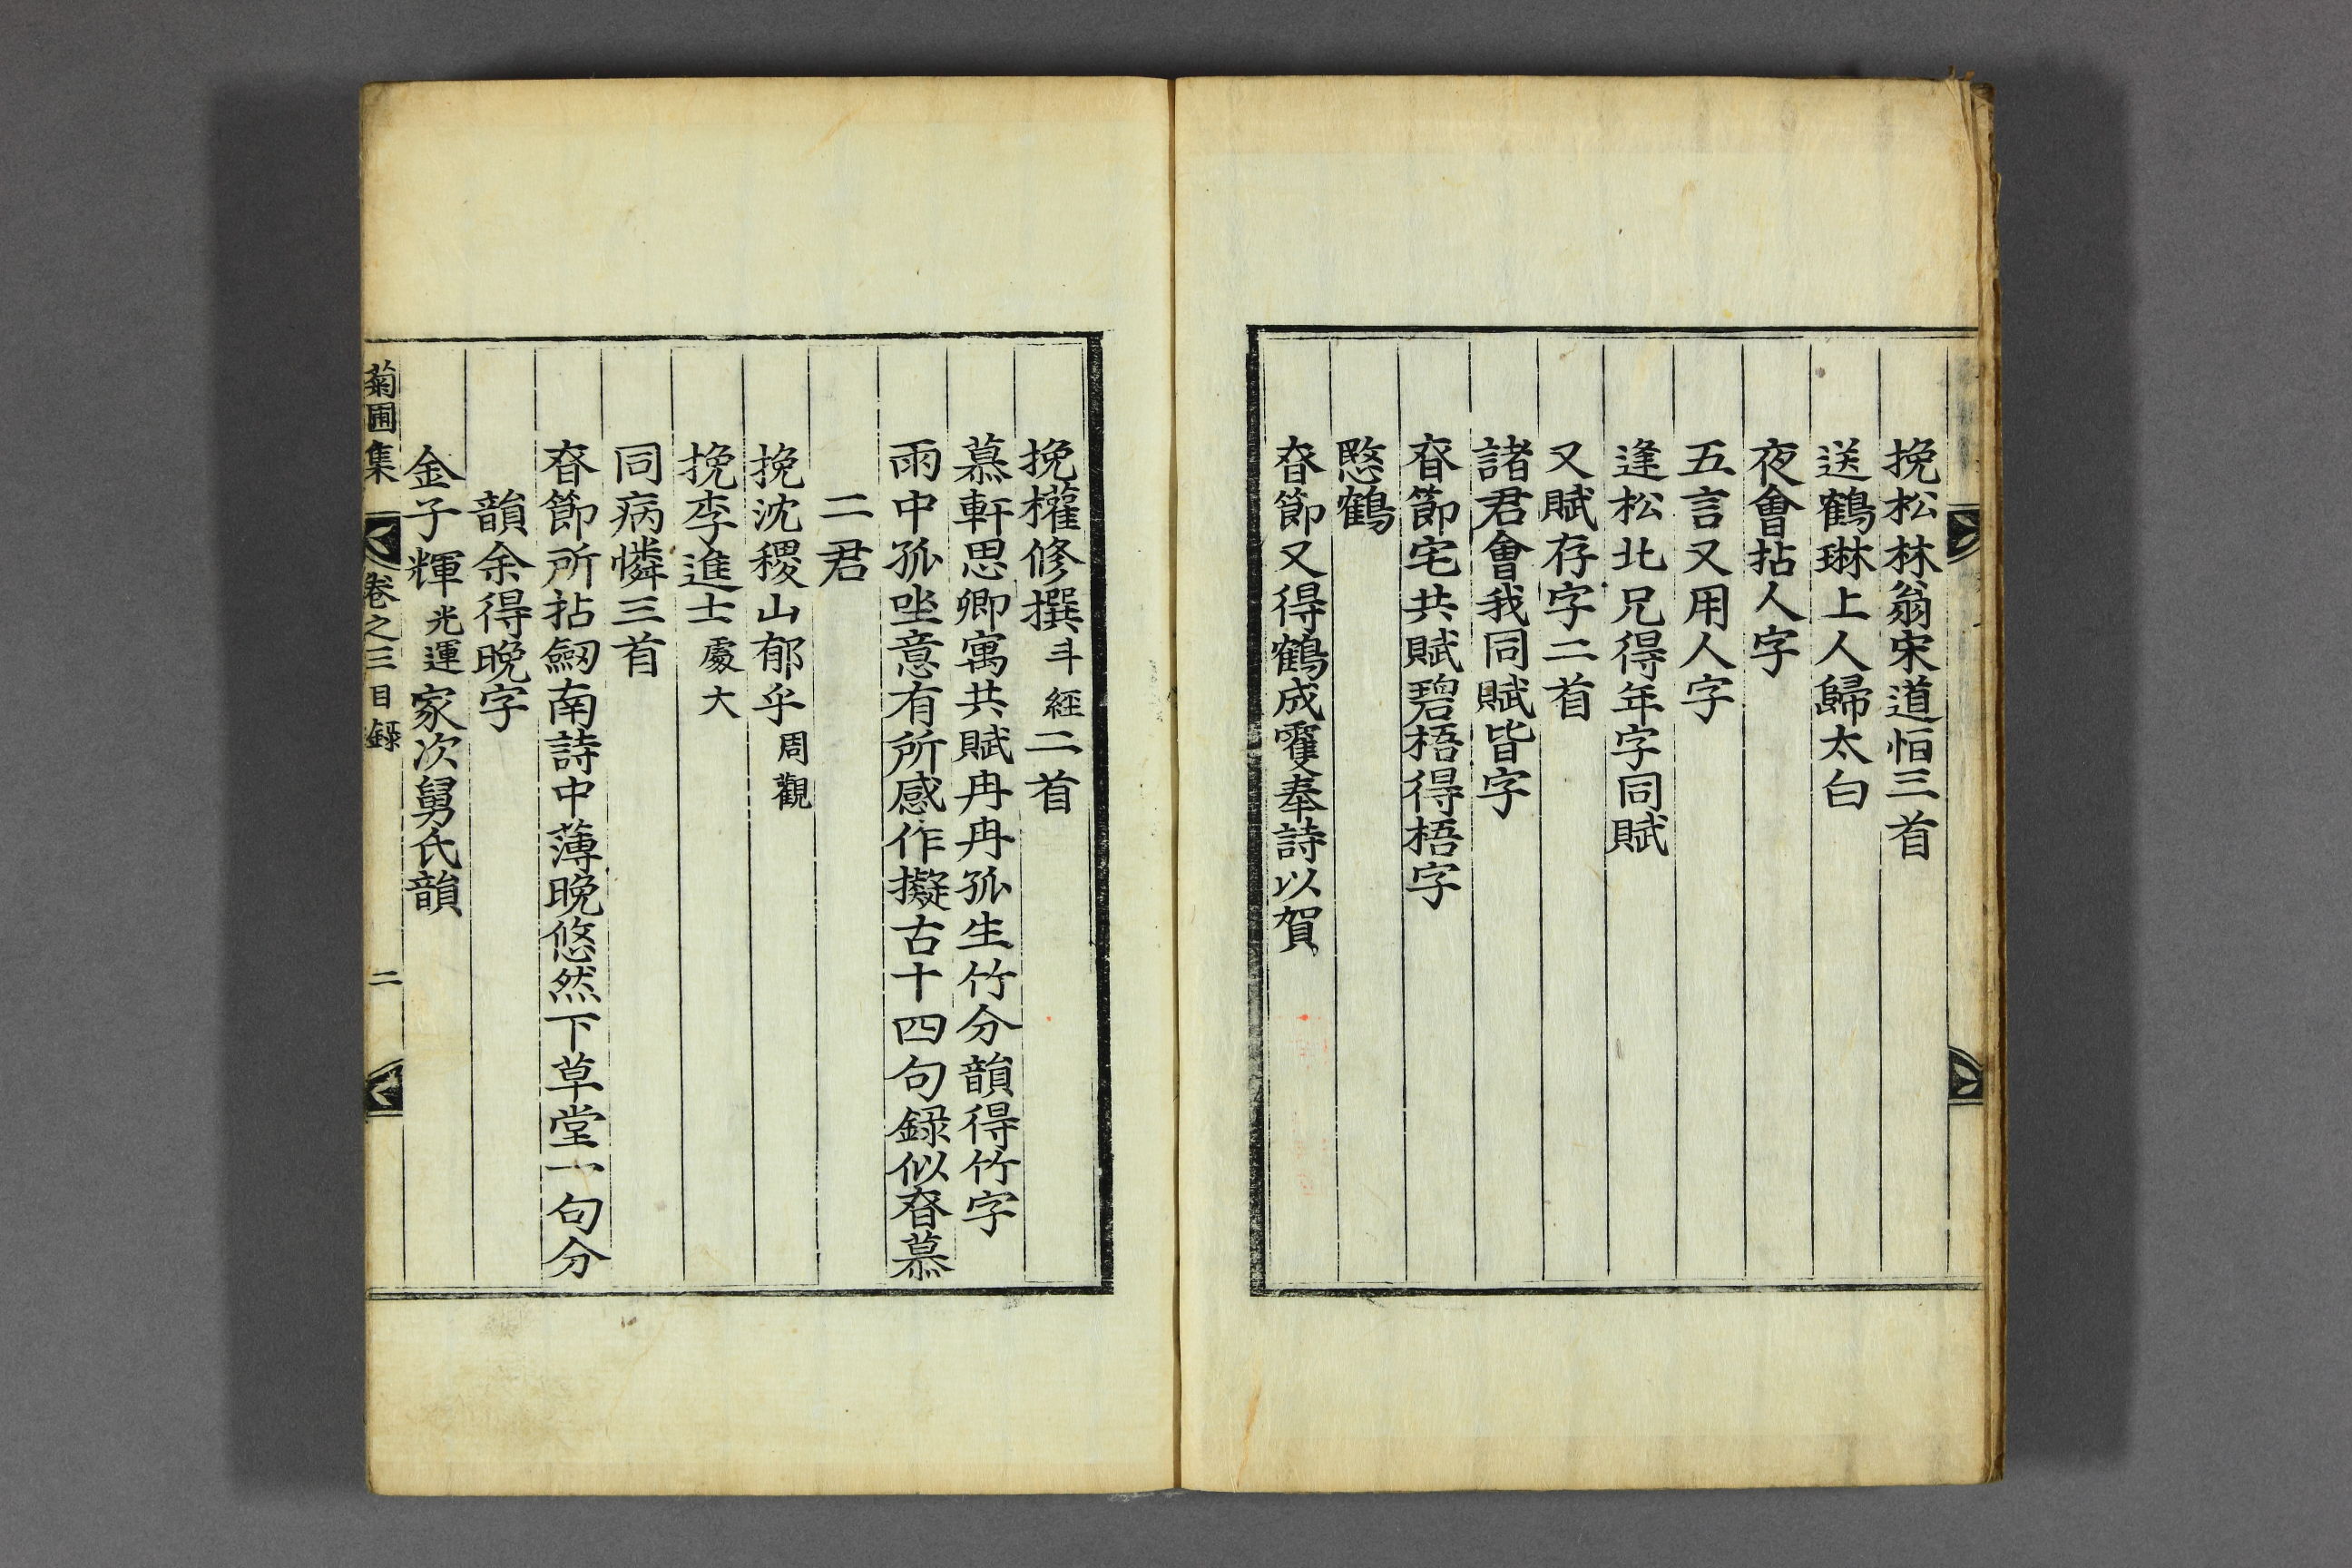 挽松林翁宋道恒三首
送鶴琳上人歸太白
夜會拈人字
五言又用人字
逢松北兄得年字同賦
又賦存字二首
諸君會我同賦皆字
㫪節宅共賦碧梧得梧字
愍鶴
㫪節又得鶴成雙奉詩以賀
挽權修撰斗經二首
慕軒思卿寓共賦冉冉孤生竹分韻得竹字
雨中孤坐意有所感作擬古十四句録似㫪慕
二君
挽沈稷山郁乎周觀
挽李進士處大
同病憐三首
㫪節所拈劒南詩中薄晚悠然下草堂一句分
韻余得晚字
金子輝光運家次舅氏韻
菊圃集 卷之三目錄 二